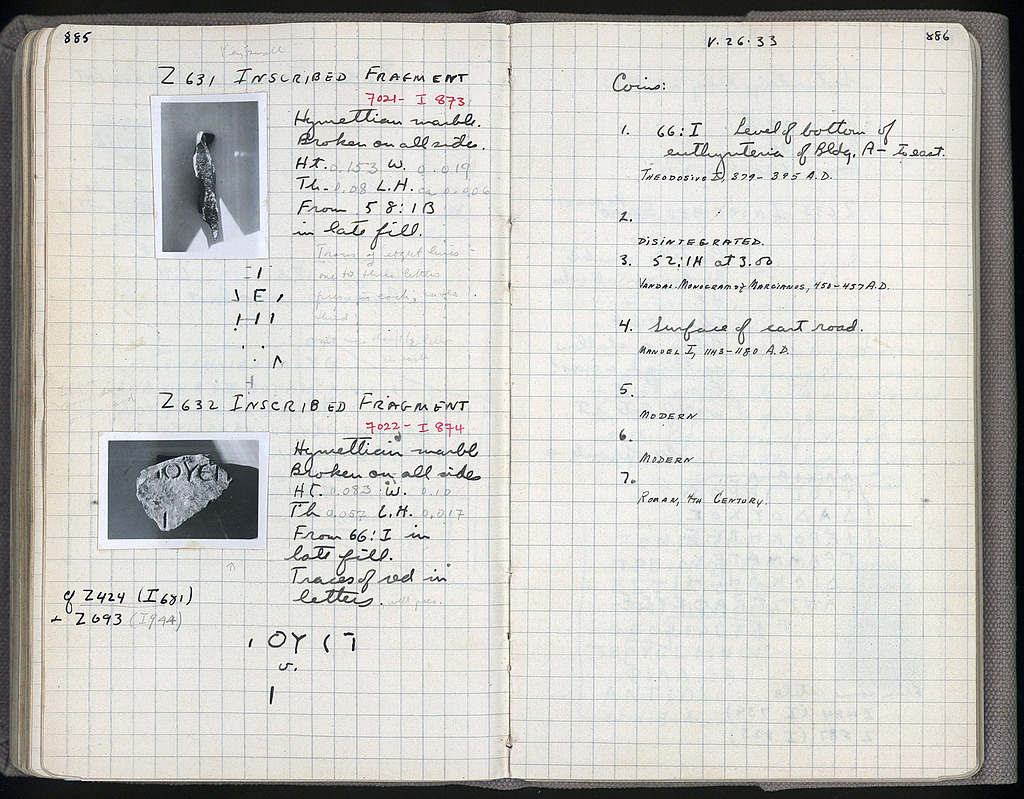 885
Z 631 INSCRIBED FRAGMENT
7021 - I 873
Hymettian marble.
Broken on all sides.
Ht. 0.153 W. 0.019
Th. 0.08 L.H. ca 0.006
From 58:1B
in late fill.
Traces of eight lines
one to three letters
Z 632 INSCRIBED FRAGMENT
7022 - I 874
Hymettian marble
Broken on all sides
Ht. 0.083 W. 0.10
Th 0.057 L.H. 0.017
From 66:I in
late fill.
Traces of red in
letters.
cf Z424 (I 681)
+ Z 693 (I 944)
OY
v.
886
V. 26. 33
Coins:
1. 66:I Level of bottom of
euthynteria of Bldg. A - to east.
THEODOSIUS I, 379 - 395 A.D.
2.
DISINTEGRATED.
3. 52:1H at 3.00
VANDAL. MONOGRAM OF MARCIANOS, 450 - 457 A.D.
4. Surface of east road.
MANUEL I, 1143 - 1180 A.D.
5.
MODERN
6.
MODERN
7.
ROMAN, 4TH CENTURY.